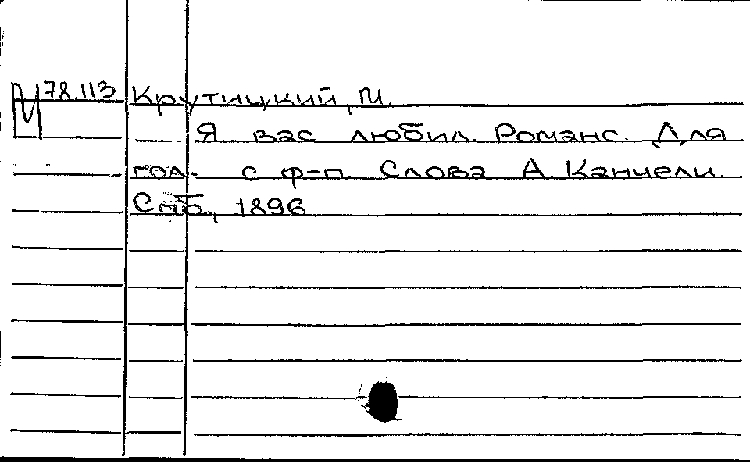 78.113 Крутицкий, И.
Я вас любил. Романс. Для
гол. с ф-п. Слова А Канчели.
Спб., 1896